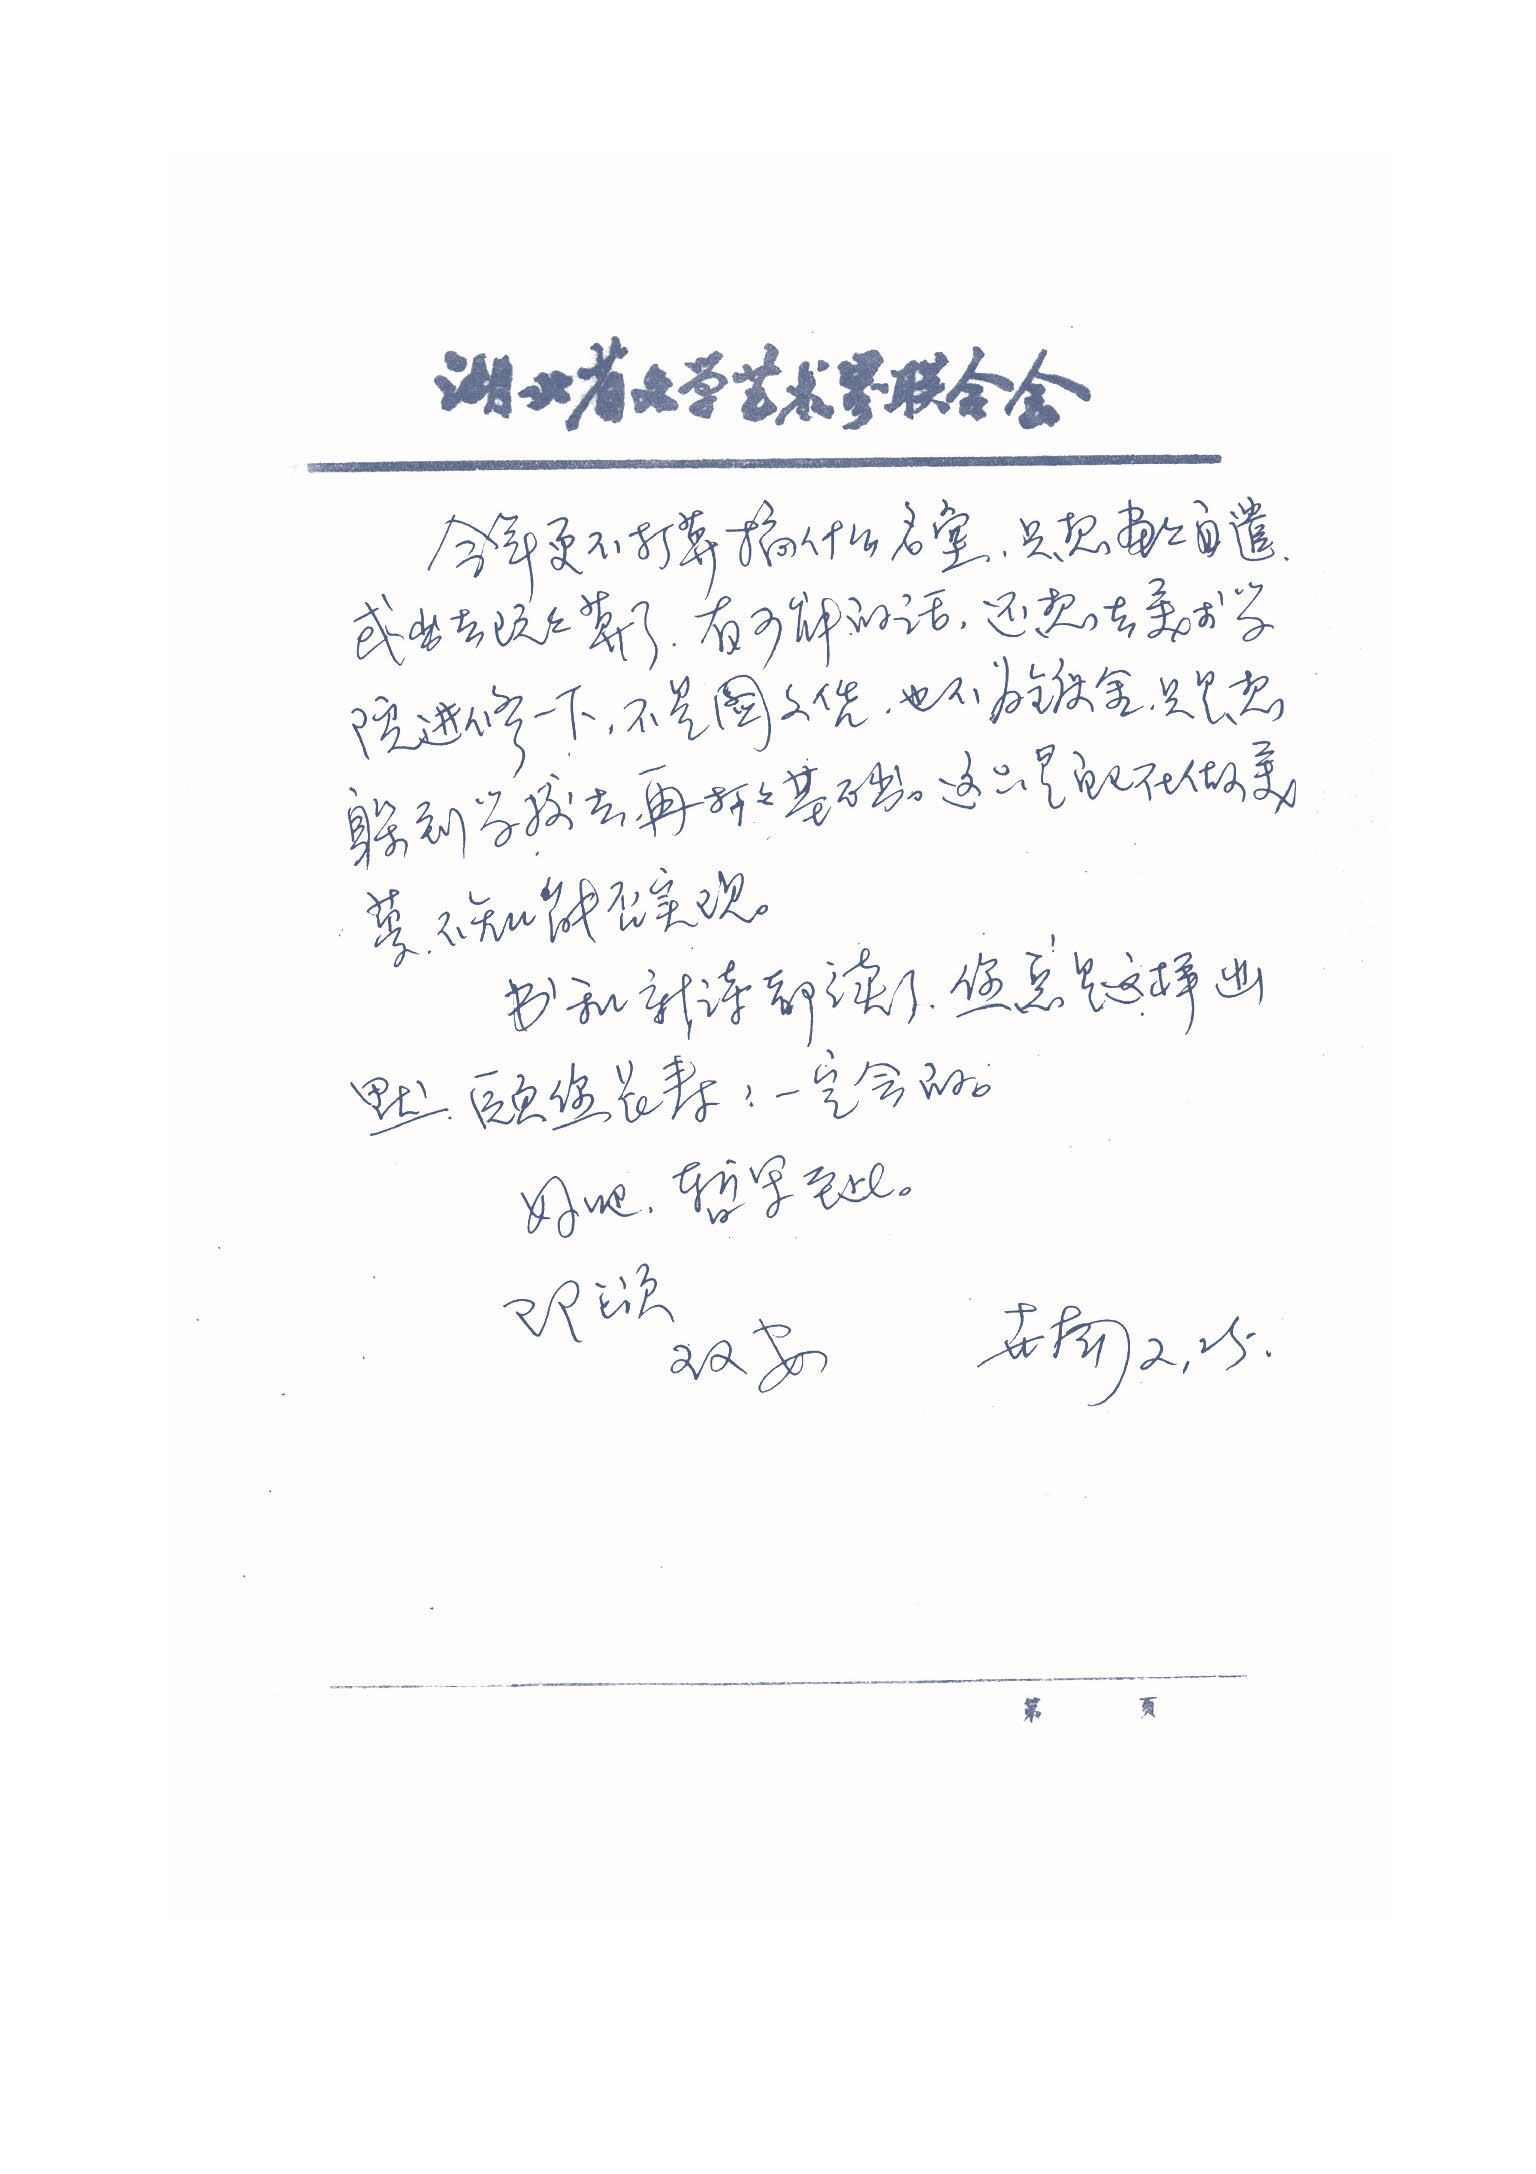 湖北省文学艺术界联合会
今年更不打算搞什么名堂,只想画之自遣,
或出去玩之算了.有可能的话,还想去美术学
院进修一下,不是图文凭,也不为镀金,只是想
躲到学校去再打之基础。这只是自己在做美
梦,不知能否实现。
书和新诗都读了,您总是这样幽
默,愿您长寿:一定会的。
好吧,暂罢至此。
即颂
双安 世南 2,25.
第 页